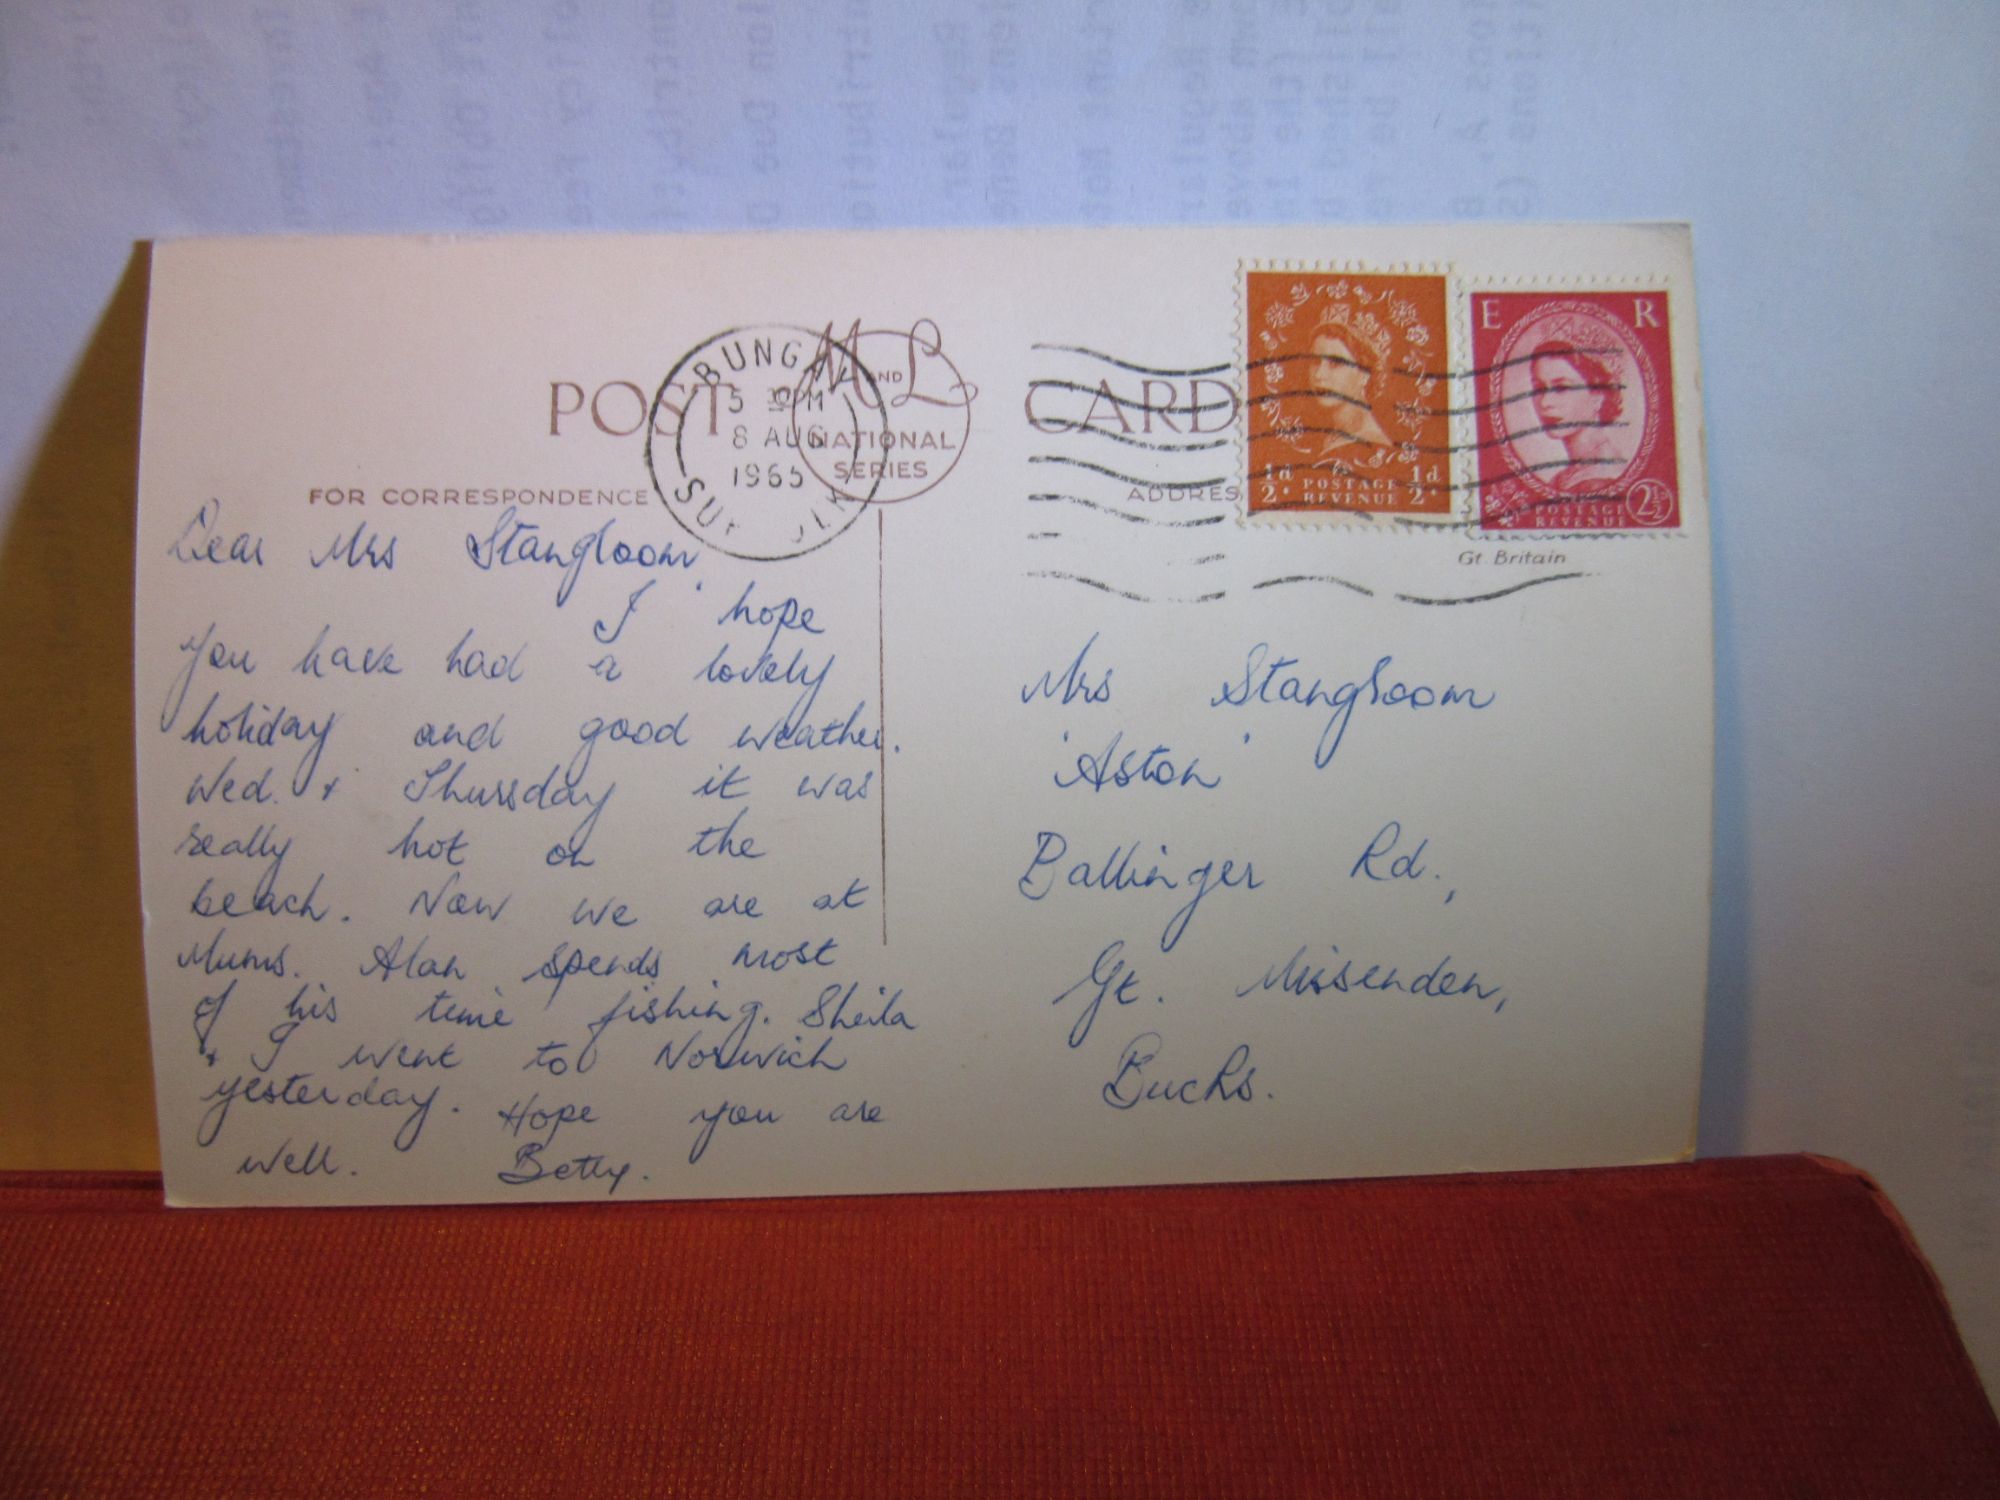 POST CARD
M AND L
NATIONAL
SERIES
5 PM
8 AUG
1965
FOR CORRESPONDENCE
E R
½d. ½d.
POSTAGE
REVENUE
2½
POSTAGE
REVENUE
Gt. Britain
Dear Mrs Stangroom,
I hope
you have had a lovely
holiday and good weather.
Wed. + Thursday it was
really hot on the
beach. Now we are at
Mums. Alan spends most
of his time fishing. Sheila
+ I went to Norwich
yesterday. Hope you are
well. Betty.
Mrs Stangroom
'Aston'
Ballinger Rd.,
Gt. Missenden,
Bucks.